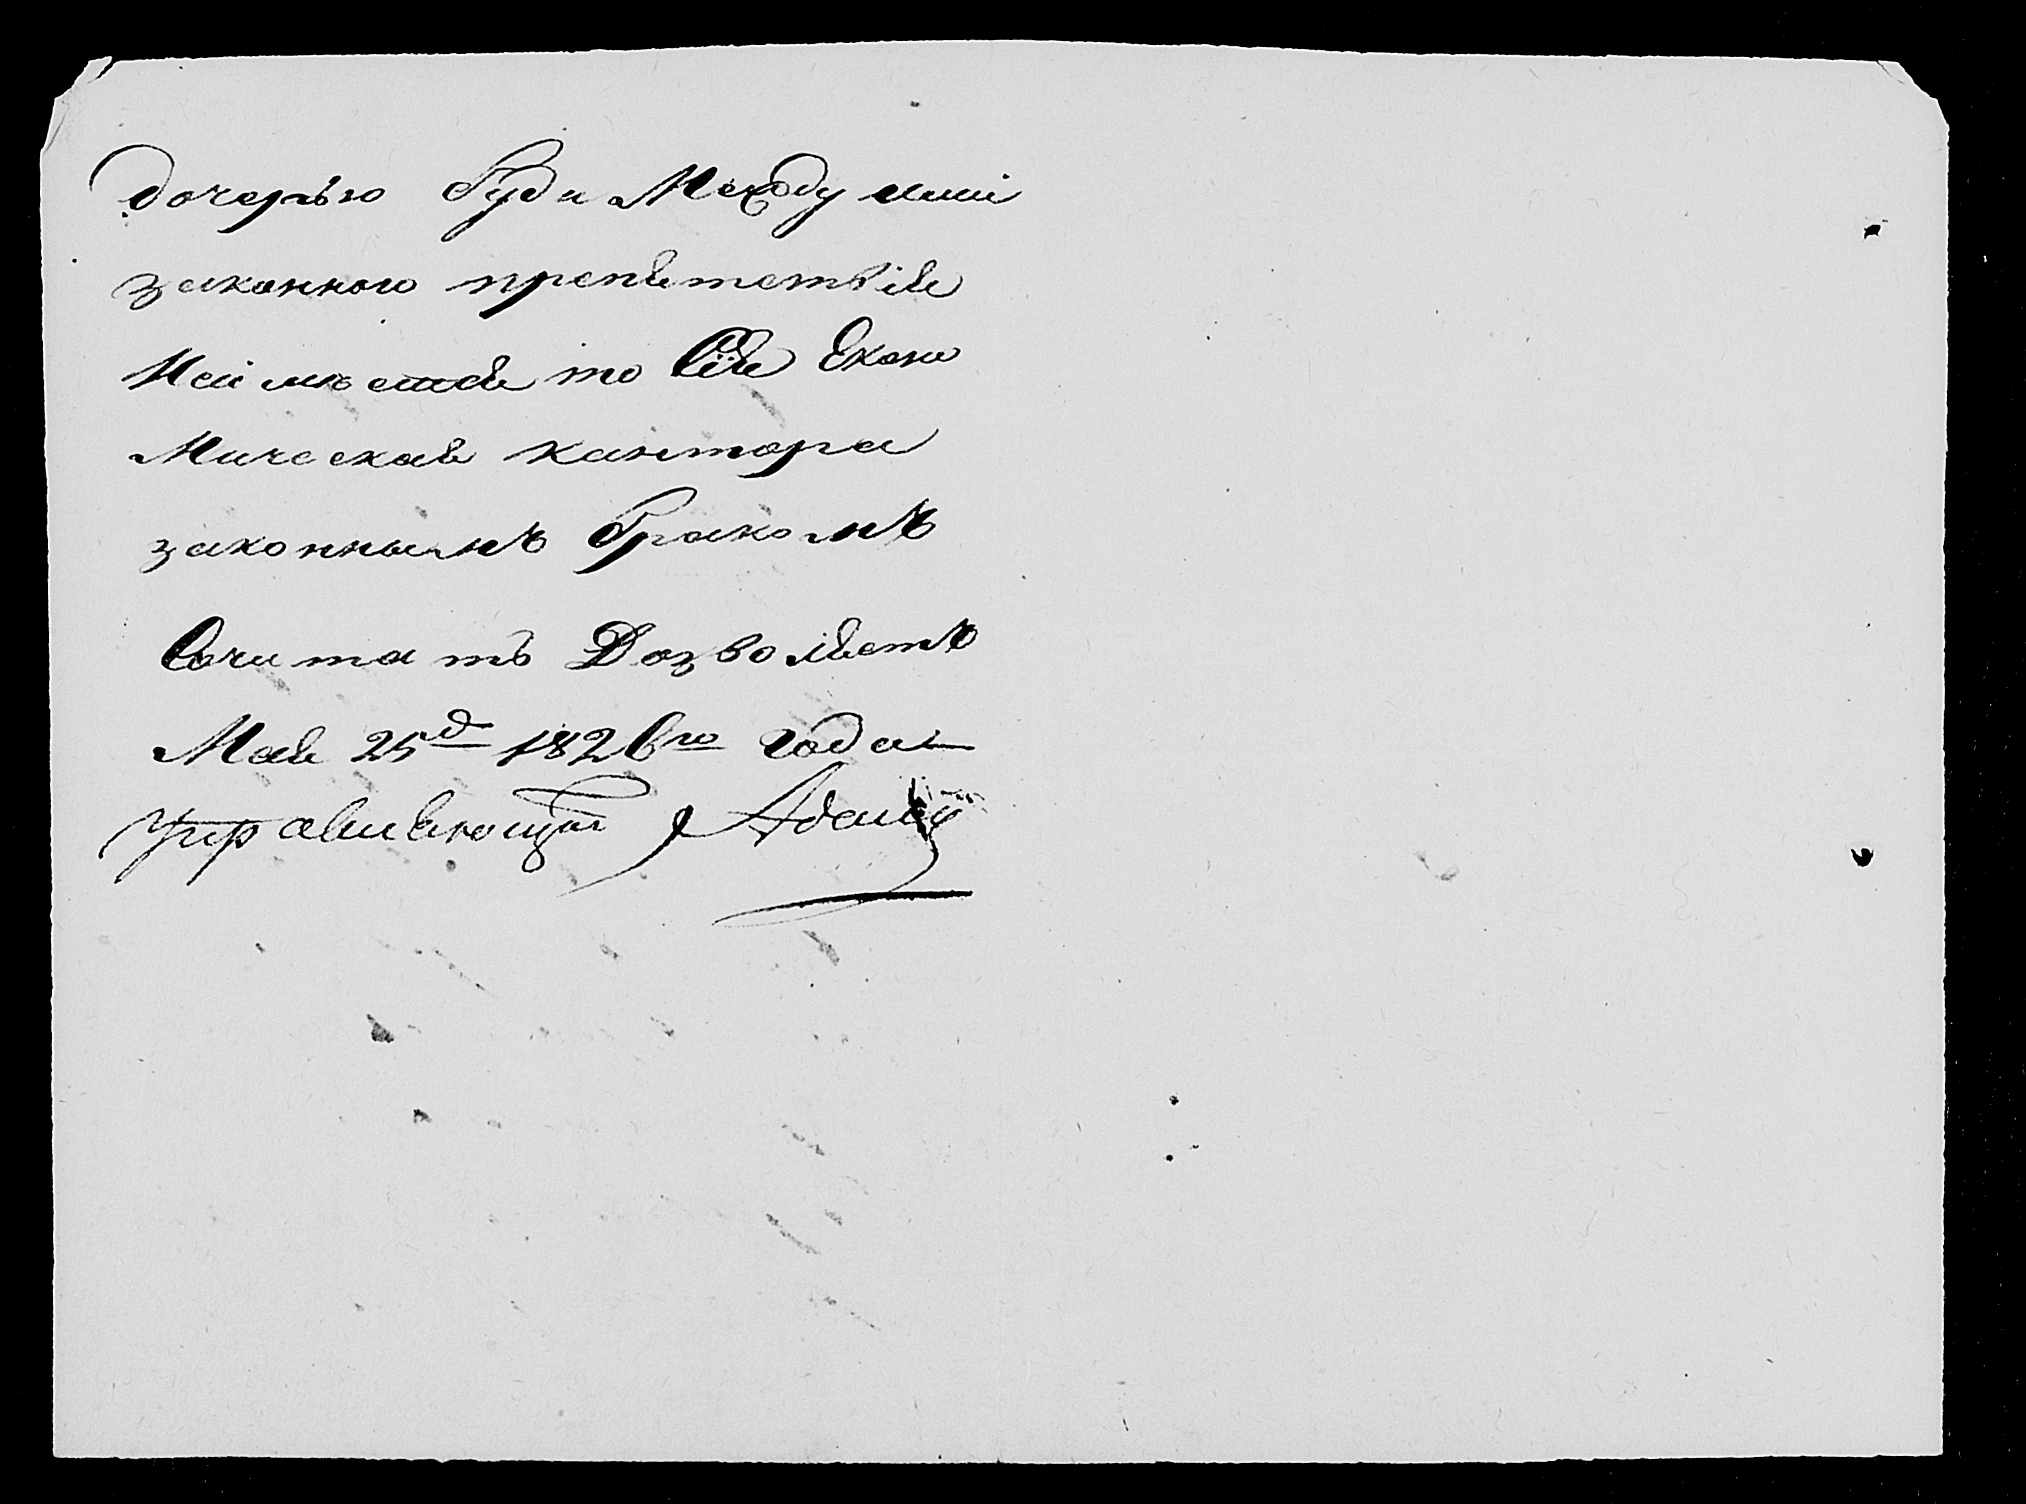 дочерью буди Между ими
законного препятствия
Неимеется то Сія Екано
Мическая кантора
законнымъ бракомъ
Сочитать Дозволяетъ
Мая 25д 1826го года
Управляющий Адам